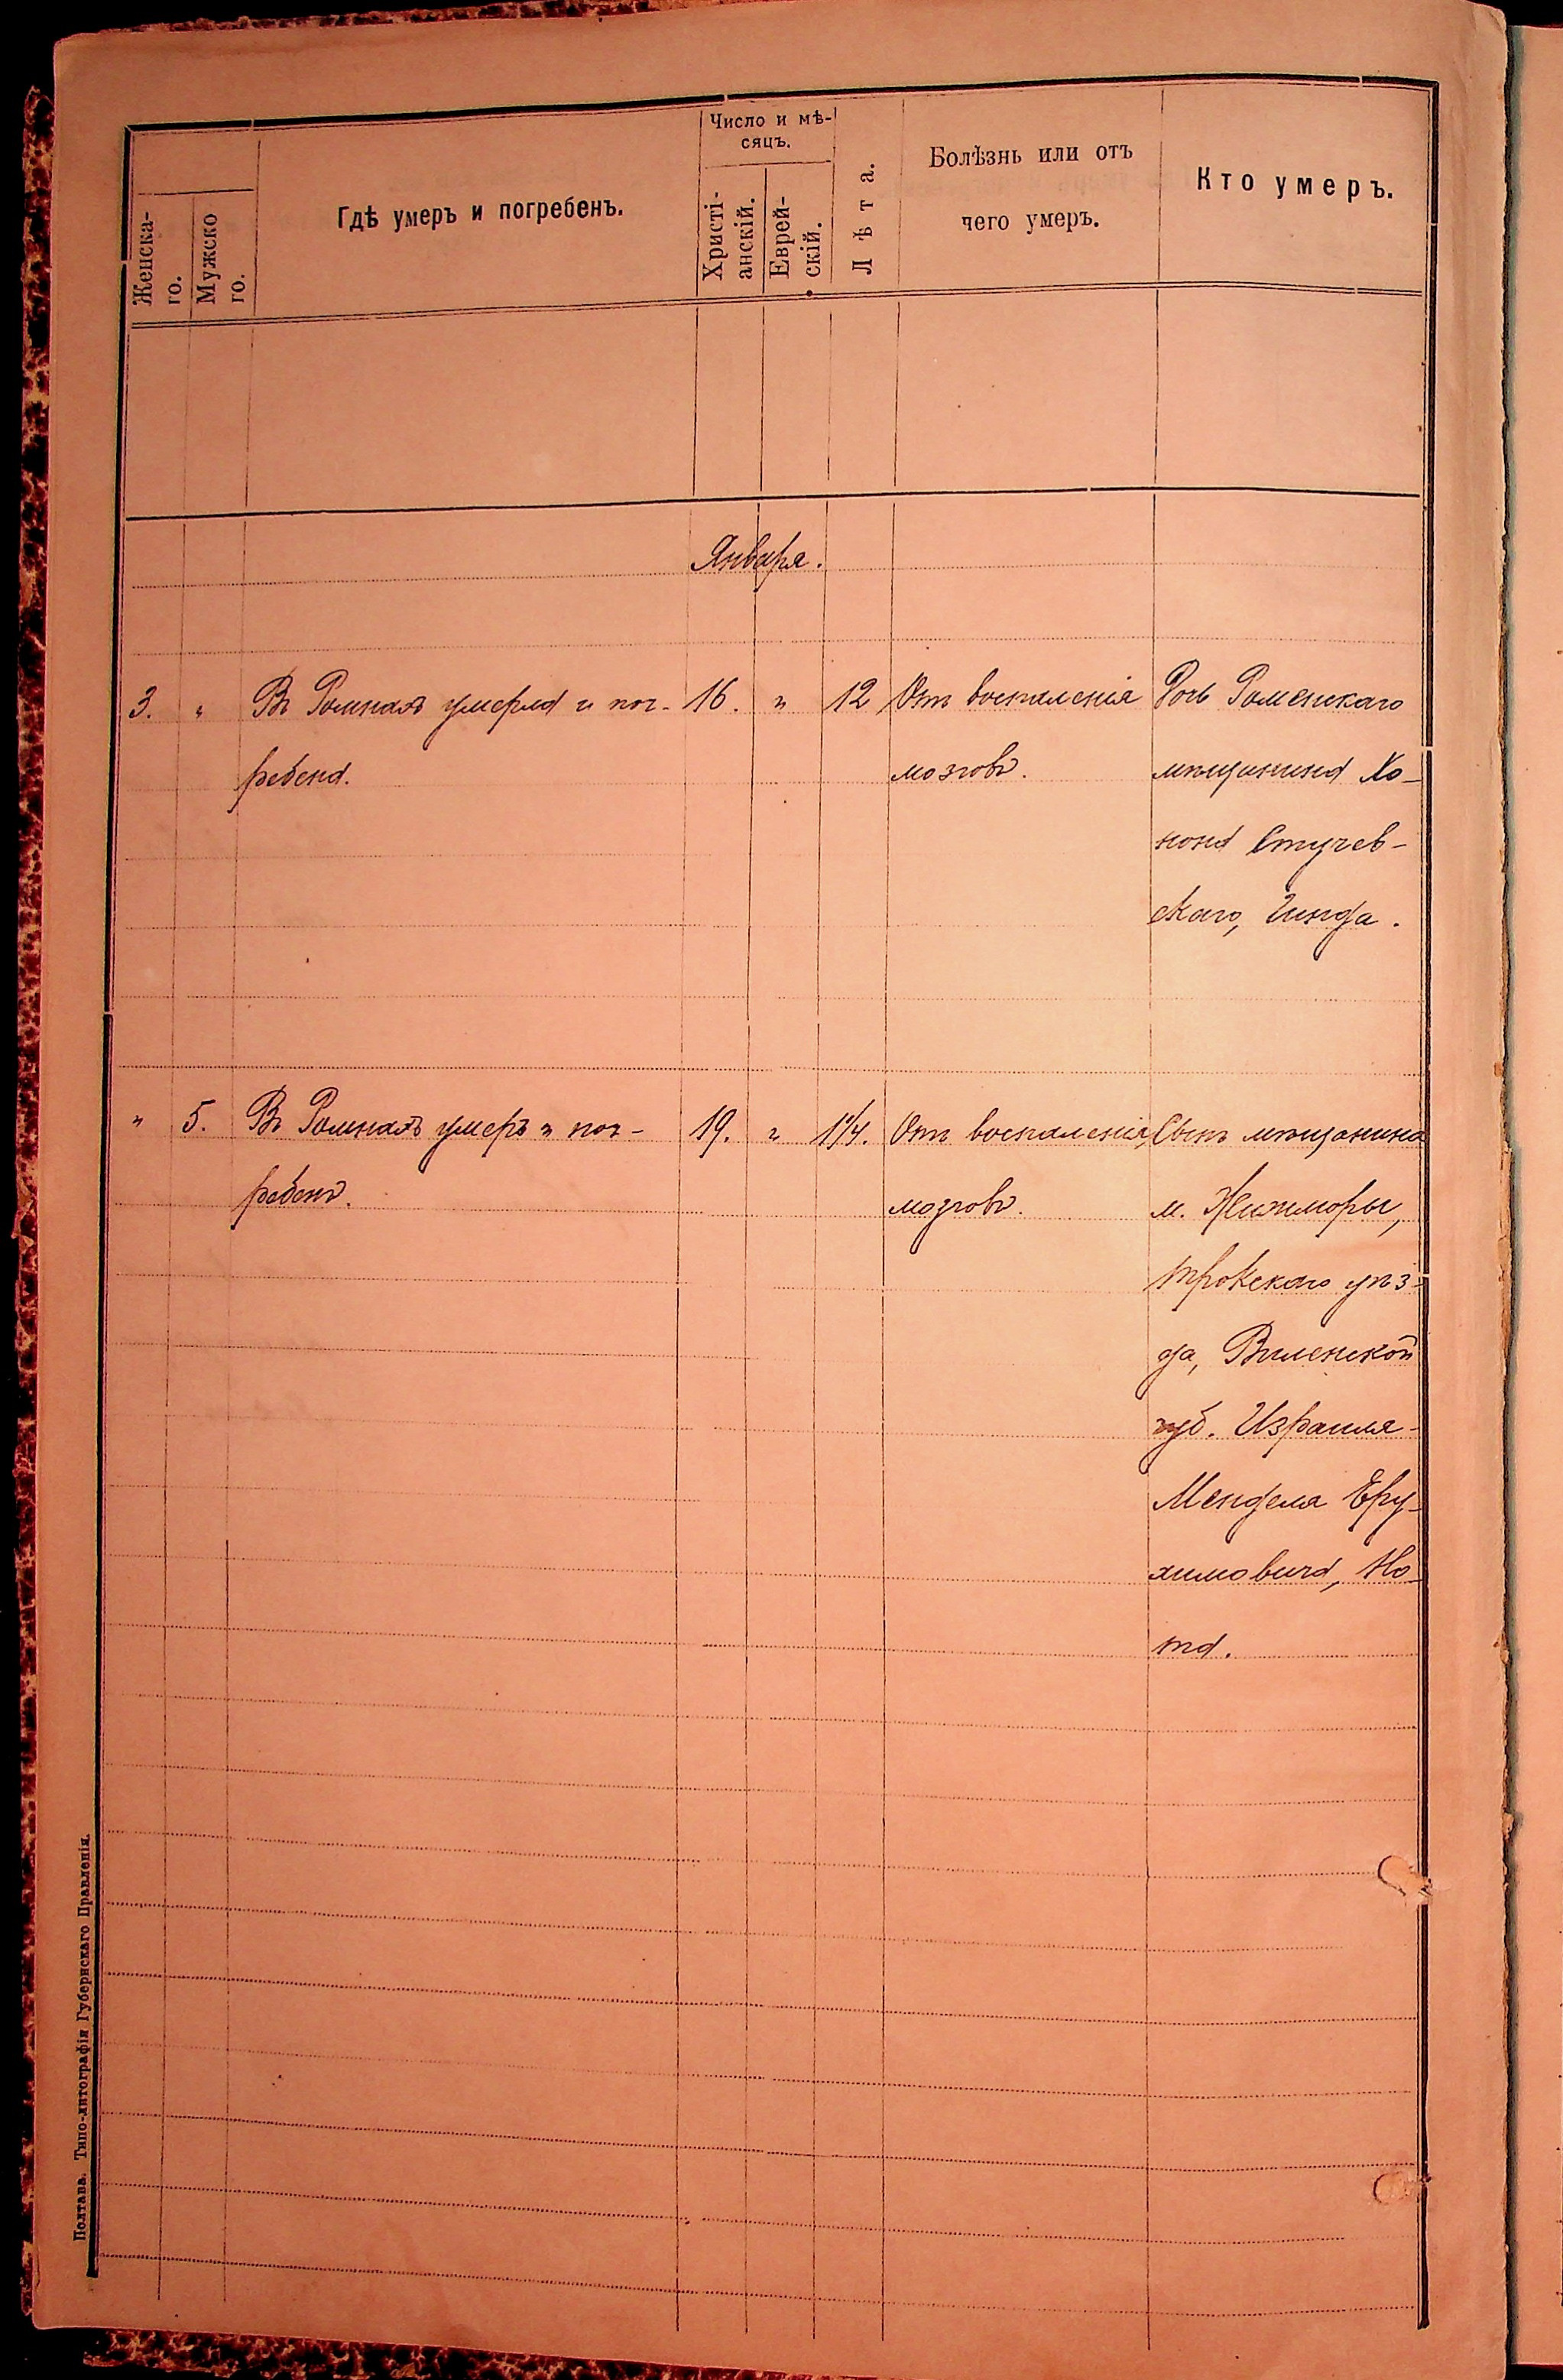 Женска-
го.
Мужско
го.
Гдѣ умеръ и погребенъ.
Число и мѣ-
сяцъ.
Христі-
анскій.
Еврей-
скій.
Лѣта.
Болѣзнь или отъ
чего умеръ.
Кто умеръ.
Января.
3. " Въ Ромнахъ умерла и пог- 16. " 12 Отъ воспаленія Дочь Роменскаго
ребена. мозговъ. мѣщанина Хо-
нона Стучев-
скаго, Гинда.
" 5. Въ Ромнахъ умеръ и пог- 19. " 1 1/4. Отъ воспаленія Сынъ мѣщанина
ребенъ. мозговъ. м. Жижморы,
Трокскаго уѣз-
да, Виленской
губ. Израиля-
Менделя Еру-
химовича, Но-
та.
Полтава. Типо-литографія Губернскаго Правленія.